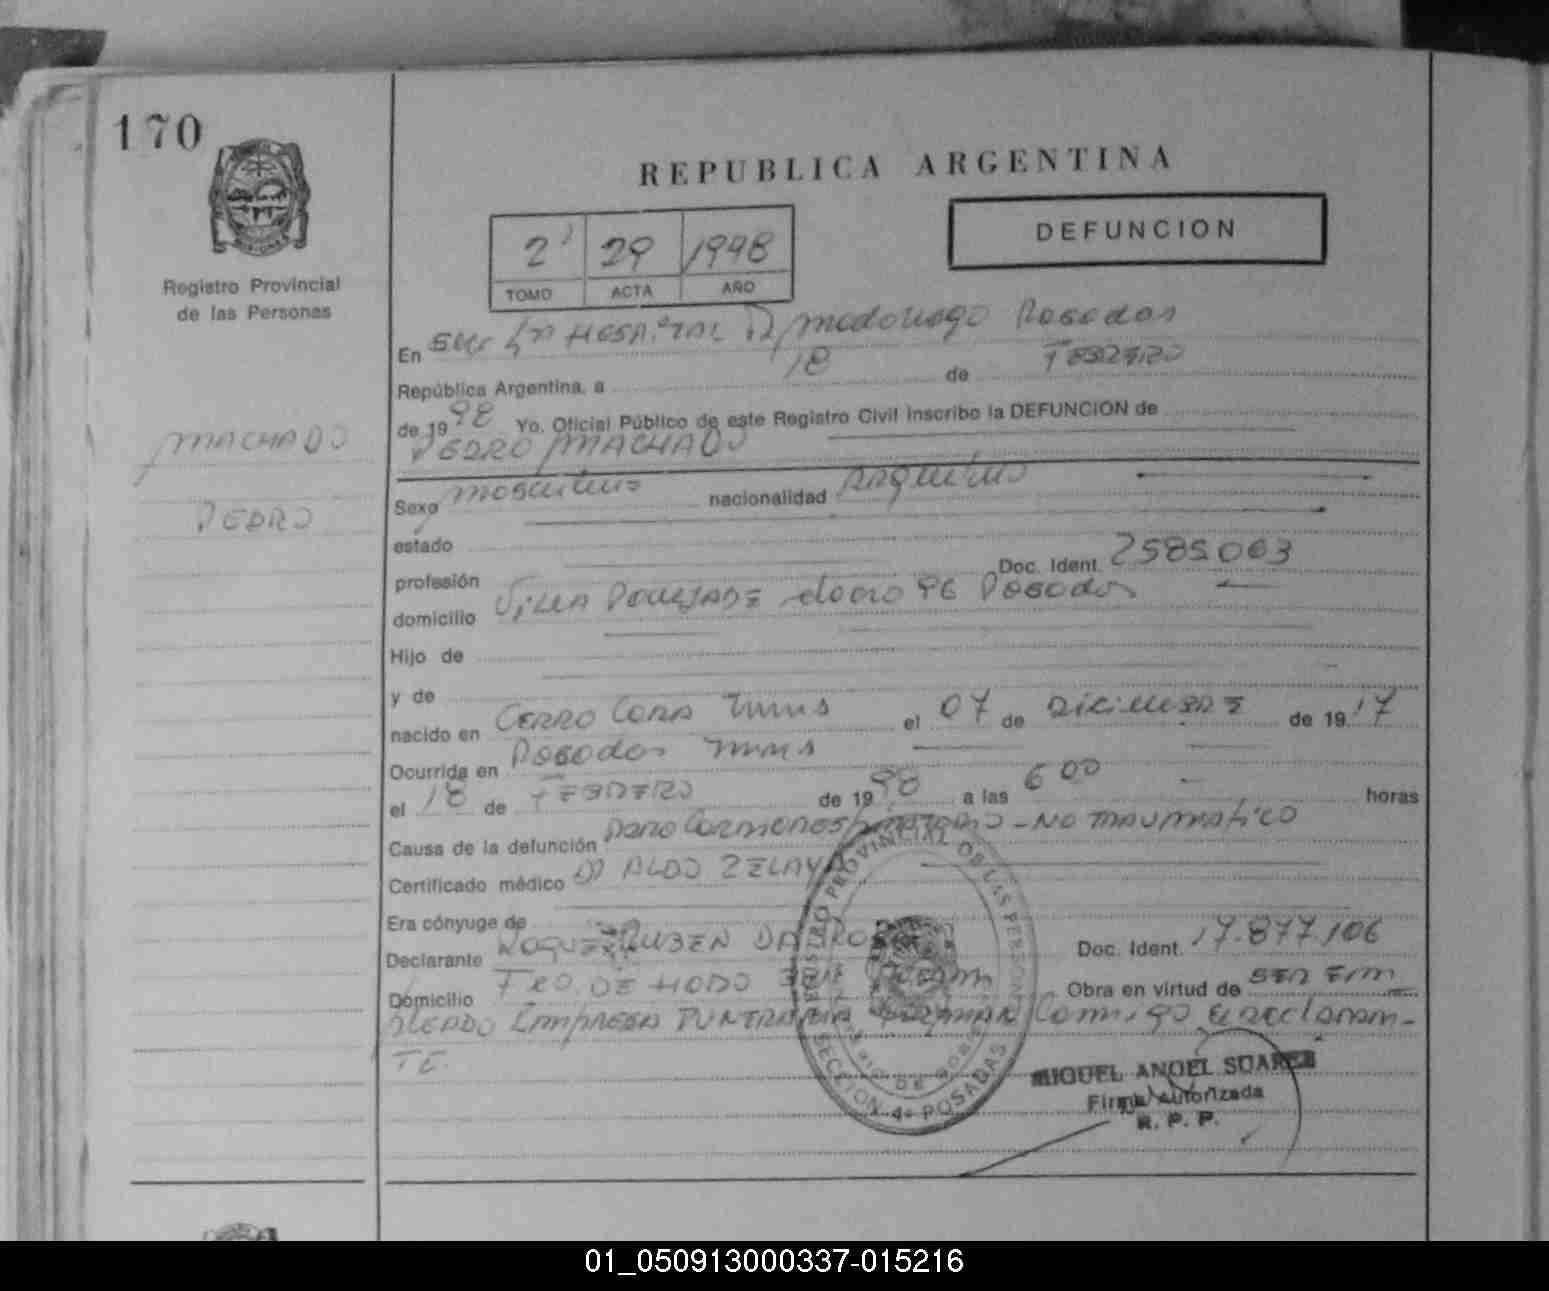 170
REPUBLICA ARGENTINA
DEFUNCION
2 29 1998
TOMO ACTA AÑO
Registro Provincial
de las Personas
En HOSPITAL Posadas
República Argentina, a 18 de FEBRERO
de 1998 Yo, Oficial Público de este Registro Civil inscribo la DEFUNCION de
PEDRO MACHADO
MACHADO
PEDRO
Sexo masculino nacionalidad Argentino
estado
profesión Doc. Ident. 7585063
domicilio VILLA POUJADE Posadas
Hijo de
y de
nacido en CERRO CORA Mnes el 07 de DICIEMBRE de 1917
Ocurrida en Posadas Mnes
el 18 de FEBRERO de 1998 a las 600 horas
Causa de la defunción Paro Cardiorespiratorio - NO TRAUMATICO
Certificado médico Dr ALDO ZELAYA
Era cónyuge de
Declarante ROQUE RUBEN Doc. Ident. 17.877.106
Domicilio Obra en virtud de SER EM
PLEADO EMPRESA FUNERARIA FIRMAN Conmigo El declaran-
TE.
REGISTRO PROVINCIAL DE LAS PERSONAS
SECCION 4ª POSADAS
MIGUEL ANGEL SUAREZ
Firma Autorizada
R. P. P.
01_050913000337-015216